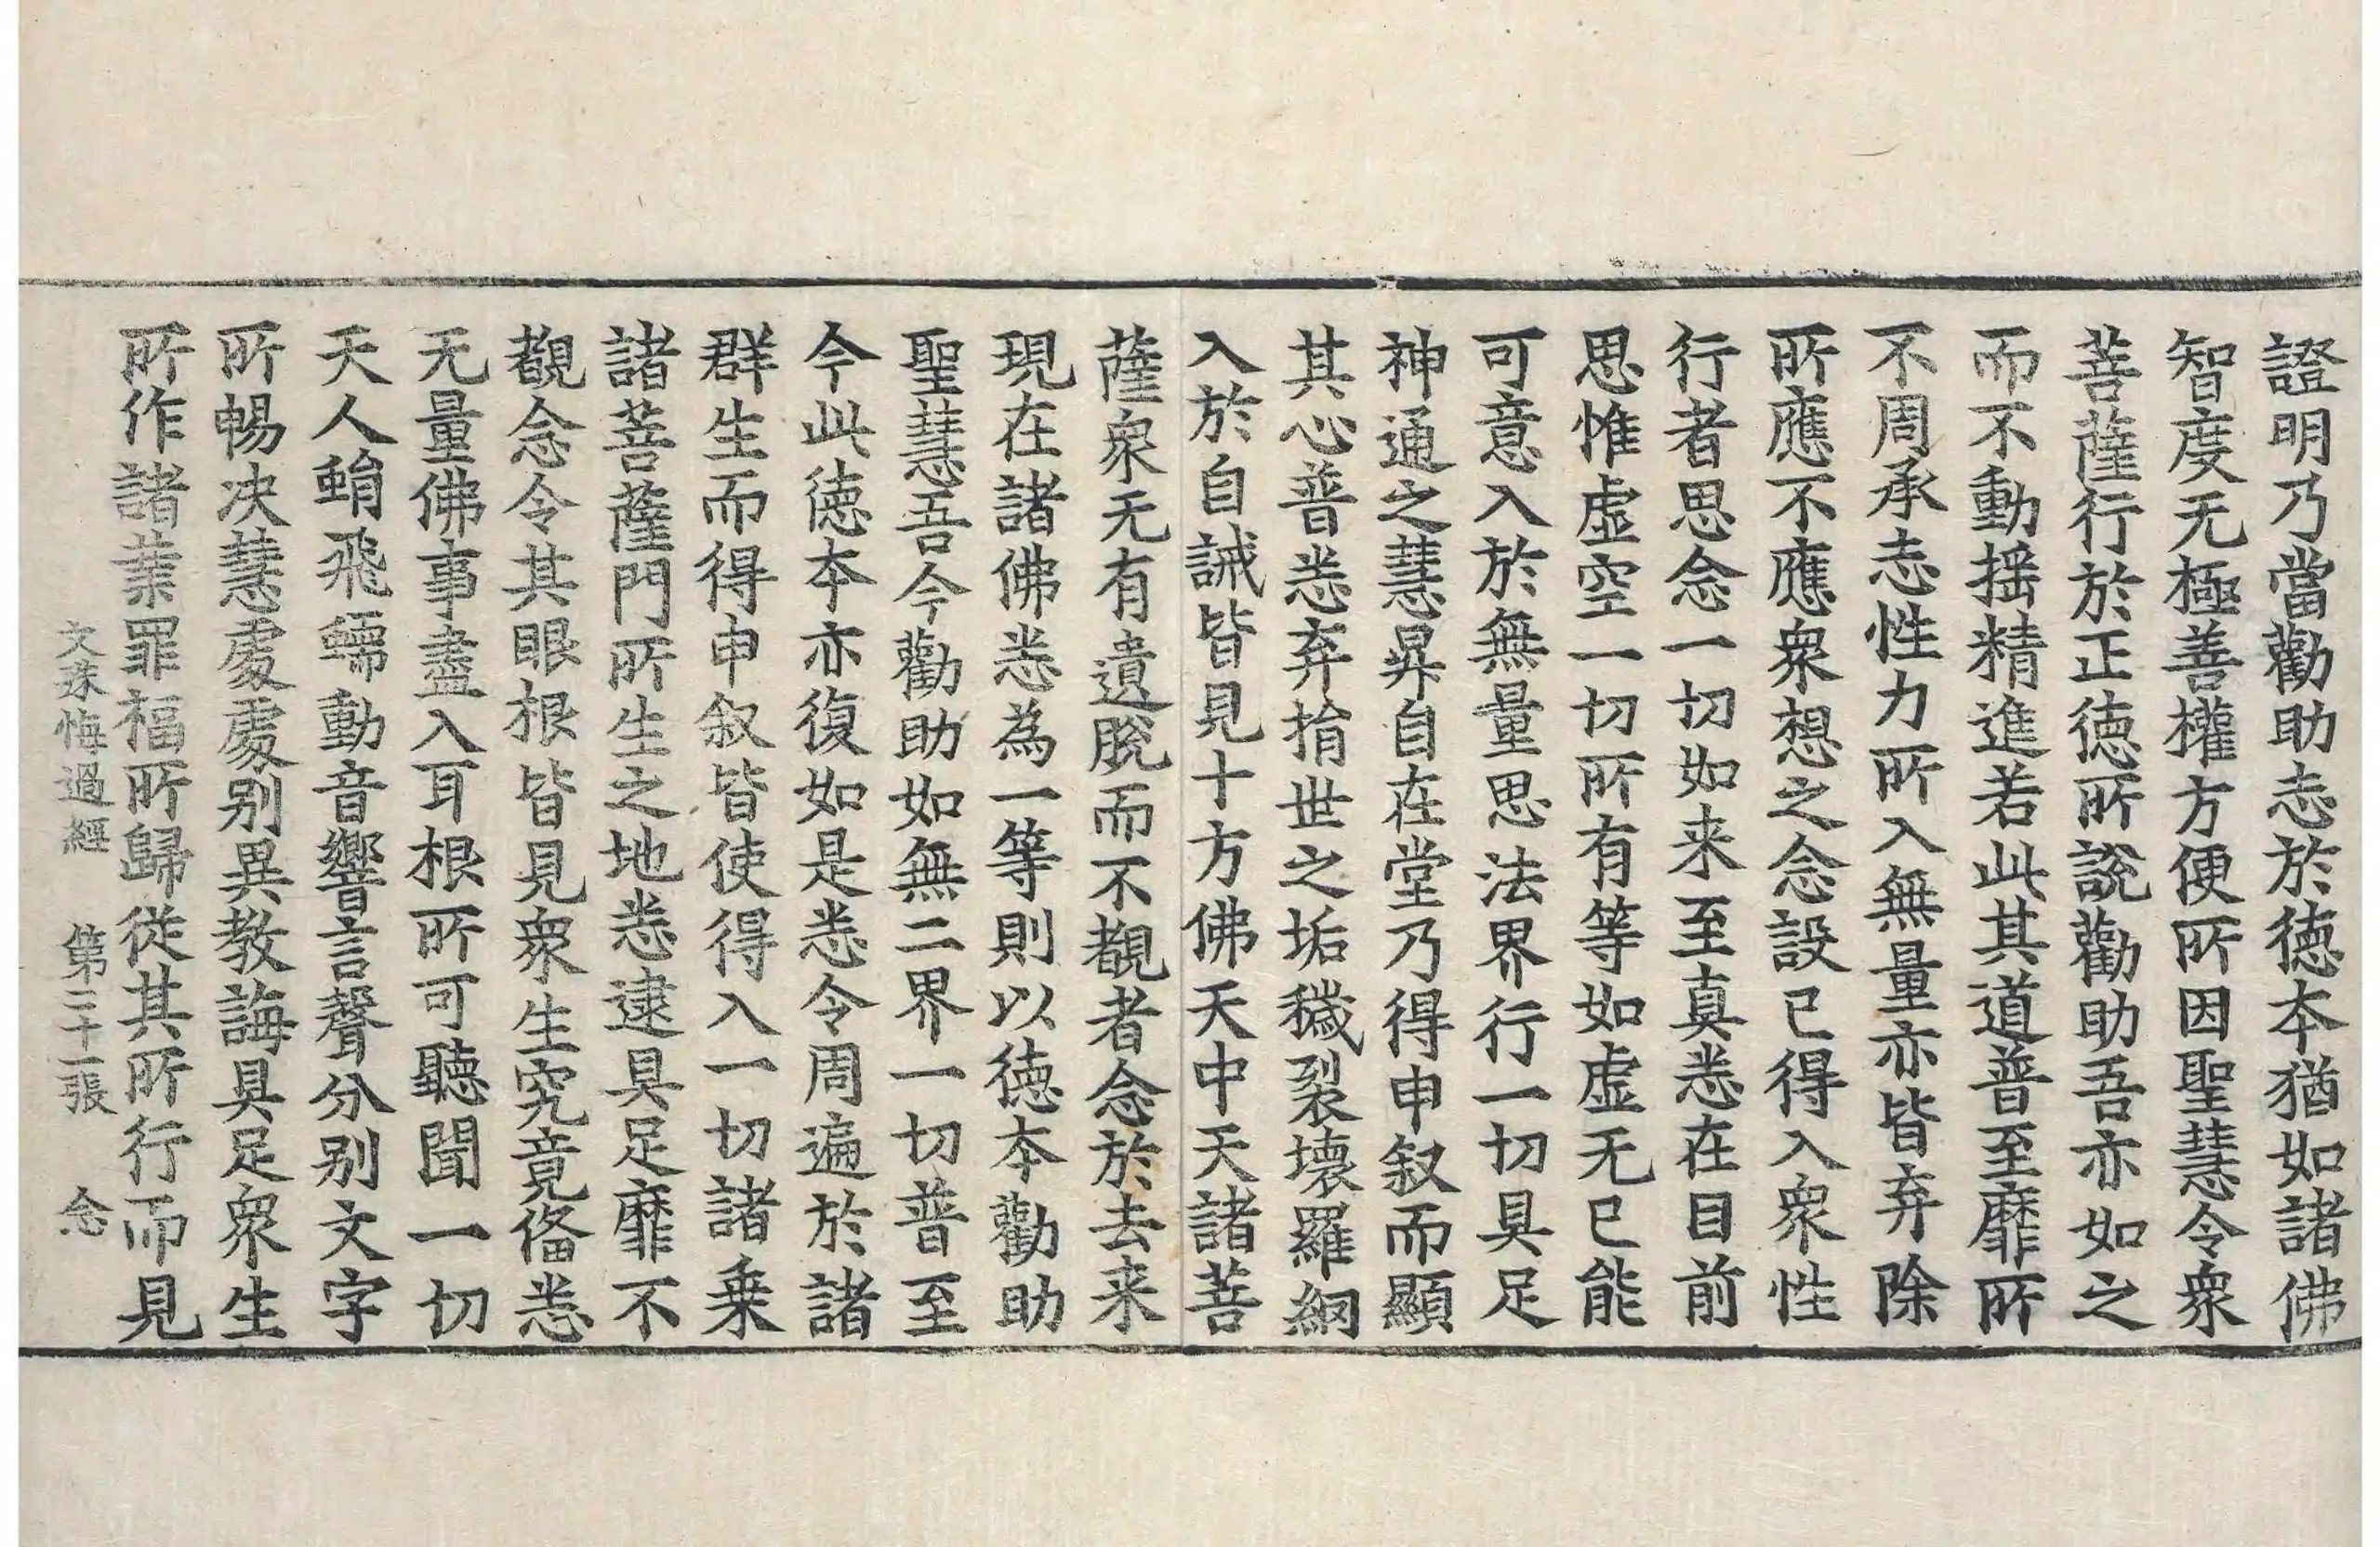 證明乃當勸助志於德本猶如諸佛
智度无極善權方便所因聖慧令衆
菩薩行於正德所說勸助吾亦如之
而不動搖精進若此其道普至靡所
不周承志性力所入無量亦皆弃除
所應不應衆想之念設已得入衆性
行者思念一切如来至真悉在目前
思惟虛空一切所有等如虛无已能
可意入於無量思法界行一切具足
神通之慧昇自在堂乃得申叙而顯
其心普悉弃捐世之垢穢裂壞羅網
入於自誡皆見十方佛天中天諸菩
薩衆无有遺脫而不覩者念於去来
現在諸佛悉為一等則以德本勸助
聖慧吾今勸助如無二界一切普至
今此德本亦復如是悉令周遍於諸
群生而得申叙皆使得入一切諸乗
諸菩薩門所生之地悉逮具足靡不
覩念令其眼根皆見衆生究竟俻悉
无量佛事盡入耳根所可聽聞一切
天人蜎飛蠕動音響言聲分别文字
所暢决慧處處别異教誨具足衆生
所作諸業罪福所歸從其所行而見
文殊悔過經　第三十一張　念